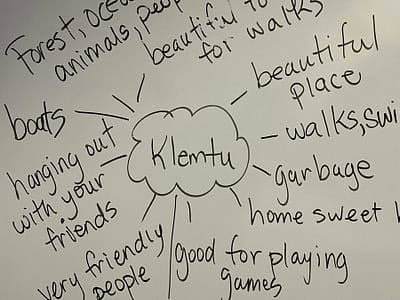 Forest, ocean
animals, people
beautiful to
for walks
beautiful
place
boats
walks, swi
hanging out
with your
friends
Klemtu
garbage
home sweet
very friendly
people
good for playing
games